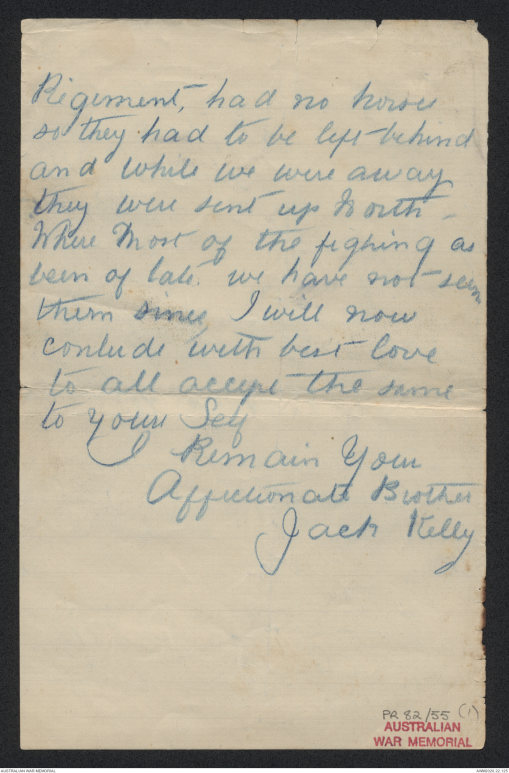 Regiment, had no horses
so they had to be left behind
and while we were away
they were sent up North -
Where Most of the fighing as
been of late. we have not seen
them since I will now
conlude with best love
to all accept the same
to your Self
I Remain Your
Affectionate Brother
Jack Kelly
PR 82/55 (1)
AUSTRALIAN
WAR MEMORIAL
AUSTRALIAN WAR MEMORIAL